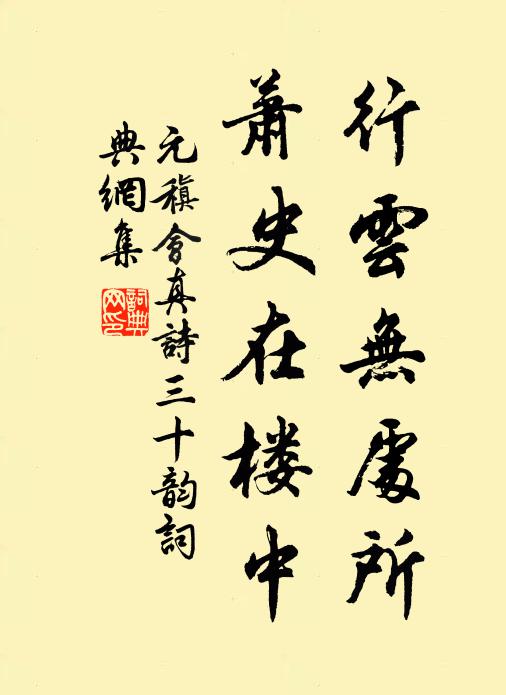 行雲無處所
蕭史在楼中
元稹會真詩三十韵詞
典網集
詞典
网印